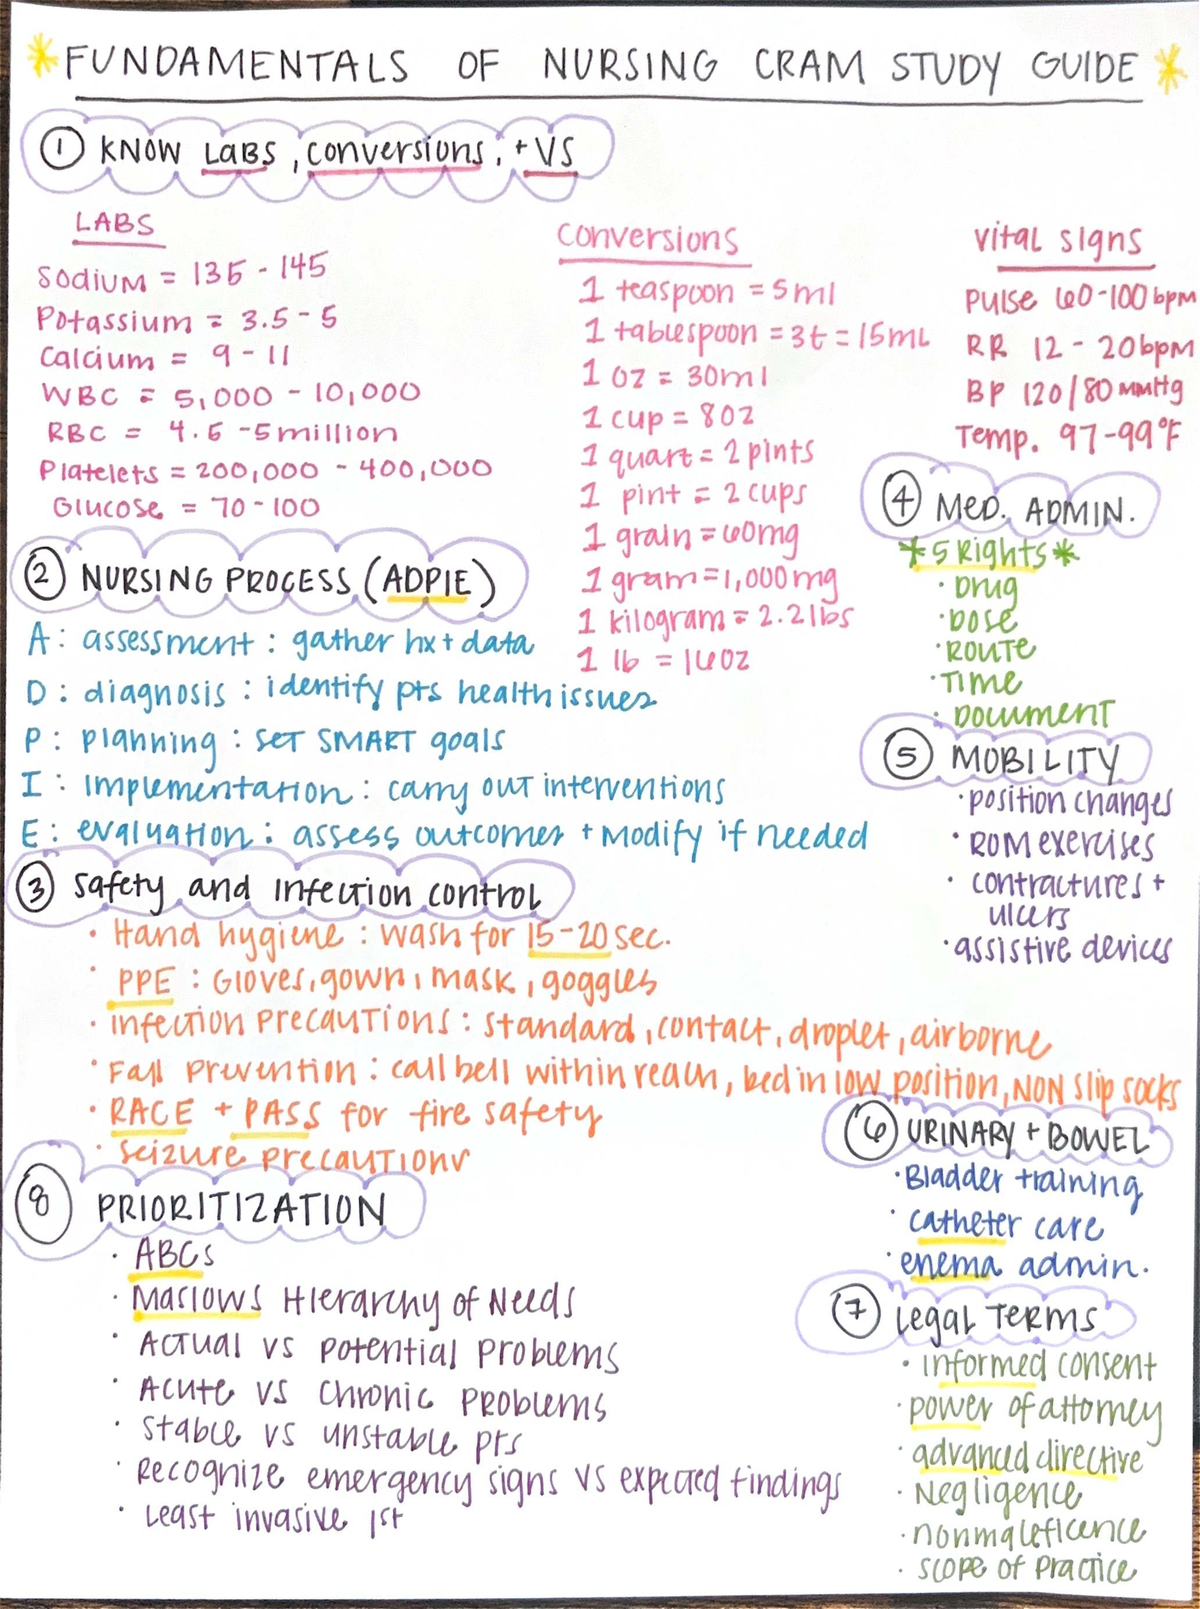 FUNDAMENTALS OF NURSING CRAM STUDY GUIDE
1 KNOW LABS, conversions, + VS
LABS
Sodium = 135 - 145
Potassium = 3.5 - 5
Calcium = 9 - 11
WBC = 5,000 - 10,000
RBC = 4.5 - 5 million
Platelets = 200,000 - 400,000
Glucose = 70 - 100
conversions
1 teaspoon = 5ml
1 tablespoon = 3t = 15mL
1 oz = 30ml
1 cup = 8oz
1 quart = 2 pints
1 pint = 2 cups
1 grain = 60mg
1 gram = 1,000 mg
1 kilogram = 2.2 lbs
1 lb = 16oz
vital signs
Pulse 60-100 bpm
RR 12 - 20 bpm
BP 120/80 mmHg
Temp. 97-99°F
2 NURSING PROCESS (ADPIE)
A: assessment: gather hx + data
D: diagnosis: identify pts health issues
P: planning: SET SMART goals
I: Implementation: carry out interventions
E: evaluation: assess outcomes + modify if needed
3 Safety and Infection control
• Hand hygiene: wash for 15-20 sec.
• PPE: Gloves, gown, mask, goggles
• Infection Precautions: standard, contact, droplet, airborne
• Fall Prevention: call bell within reach, bed in low position, NON slip socks
• RACE + PASS for fire safety
• Seizure precautions
4 MED. ADMIN.
*5 Rights*
• Drug
• Dose
• ROUTE
• Time
• Document
5 MOBILITY
• position changes
• ROM exercises
• contractures +
ulcers
• assistive devices
6 URINARY + BOWEL
• Bladder training
• catheter care
• enema admin.
7 Legal Terms
• informed consent
• power of attorney
• advanced directive
• Negligence
• nonmaleficence
• scope of practice
8 PRIORITIZATION
• ABCs
• Maslows Hierarchy of Needs
• Actual vs potential problems
• Acute vs chronic problems
• Stable vs unstable pts
• Recognize emergency signs vs expected findings
• Least invasive 1st